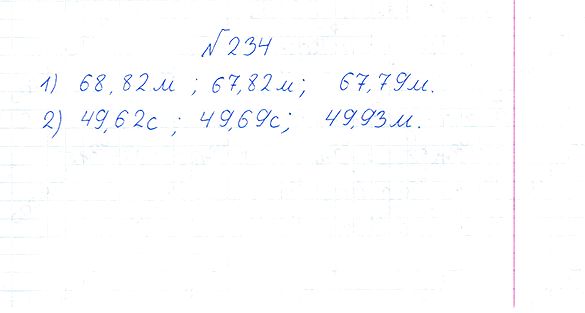 №234
1) 68,82м ; 67,82м; 67,79м.
2) 49,62с ; 49,69с; 49,93м.